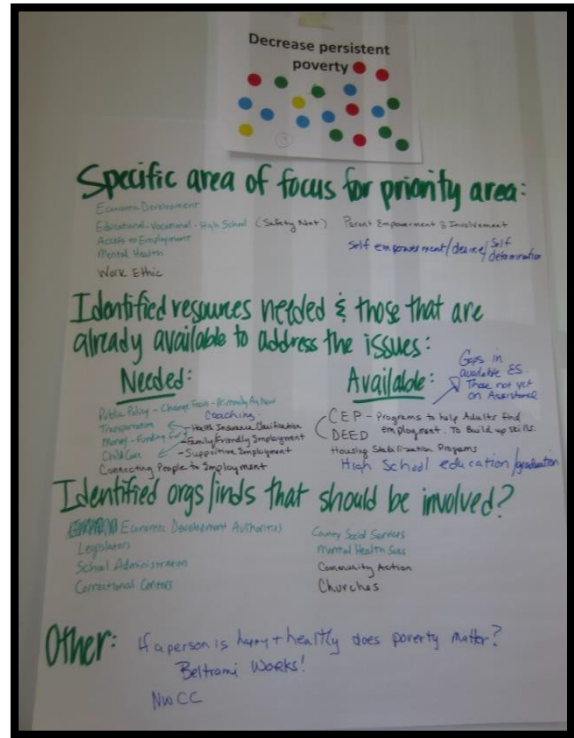 Decrease persistent
poverty
Specific area of focus for priority area:
Economic Development
Educational-Vocational-High School (Safety Net)
Access to Employment
Mental Health
Work Ethic
Parent Empowerment & Involvement
Self empowerment/desire/Self
determination
Identified resources needed & those that are
already available to address the issues:
Needed:
Public Policy - Change Focus -
Transportation
Money - Funding for
Child Care
Coaching
Health Insurance Clarification
Family Friendly Employment
Supportive Employment
Connecting People to Employment
Available:
Gaps in
available ES.
Those not yet
on Assistance
CEP - Programs to help Adults find
DEED employment. To Build up skills.
Housing Stabilization Programs
High School education/graduation
Identified orgs/inds that should be involved?
Economic Development Authorities
Legislators
School Administrators
Correctional Centers
County Social Services
Mental Health Svcs
Community Action
Churches
Other: If a person is happy + healthy does poverty matter?
Beltrami Works!
NWCC